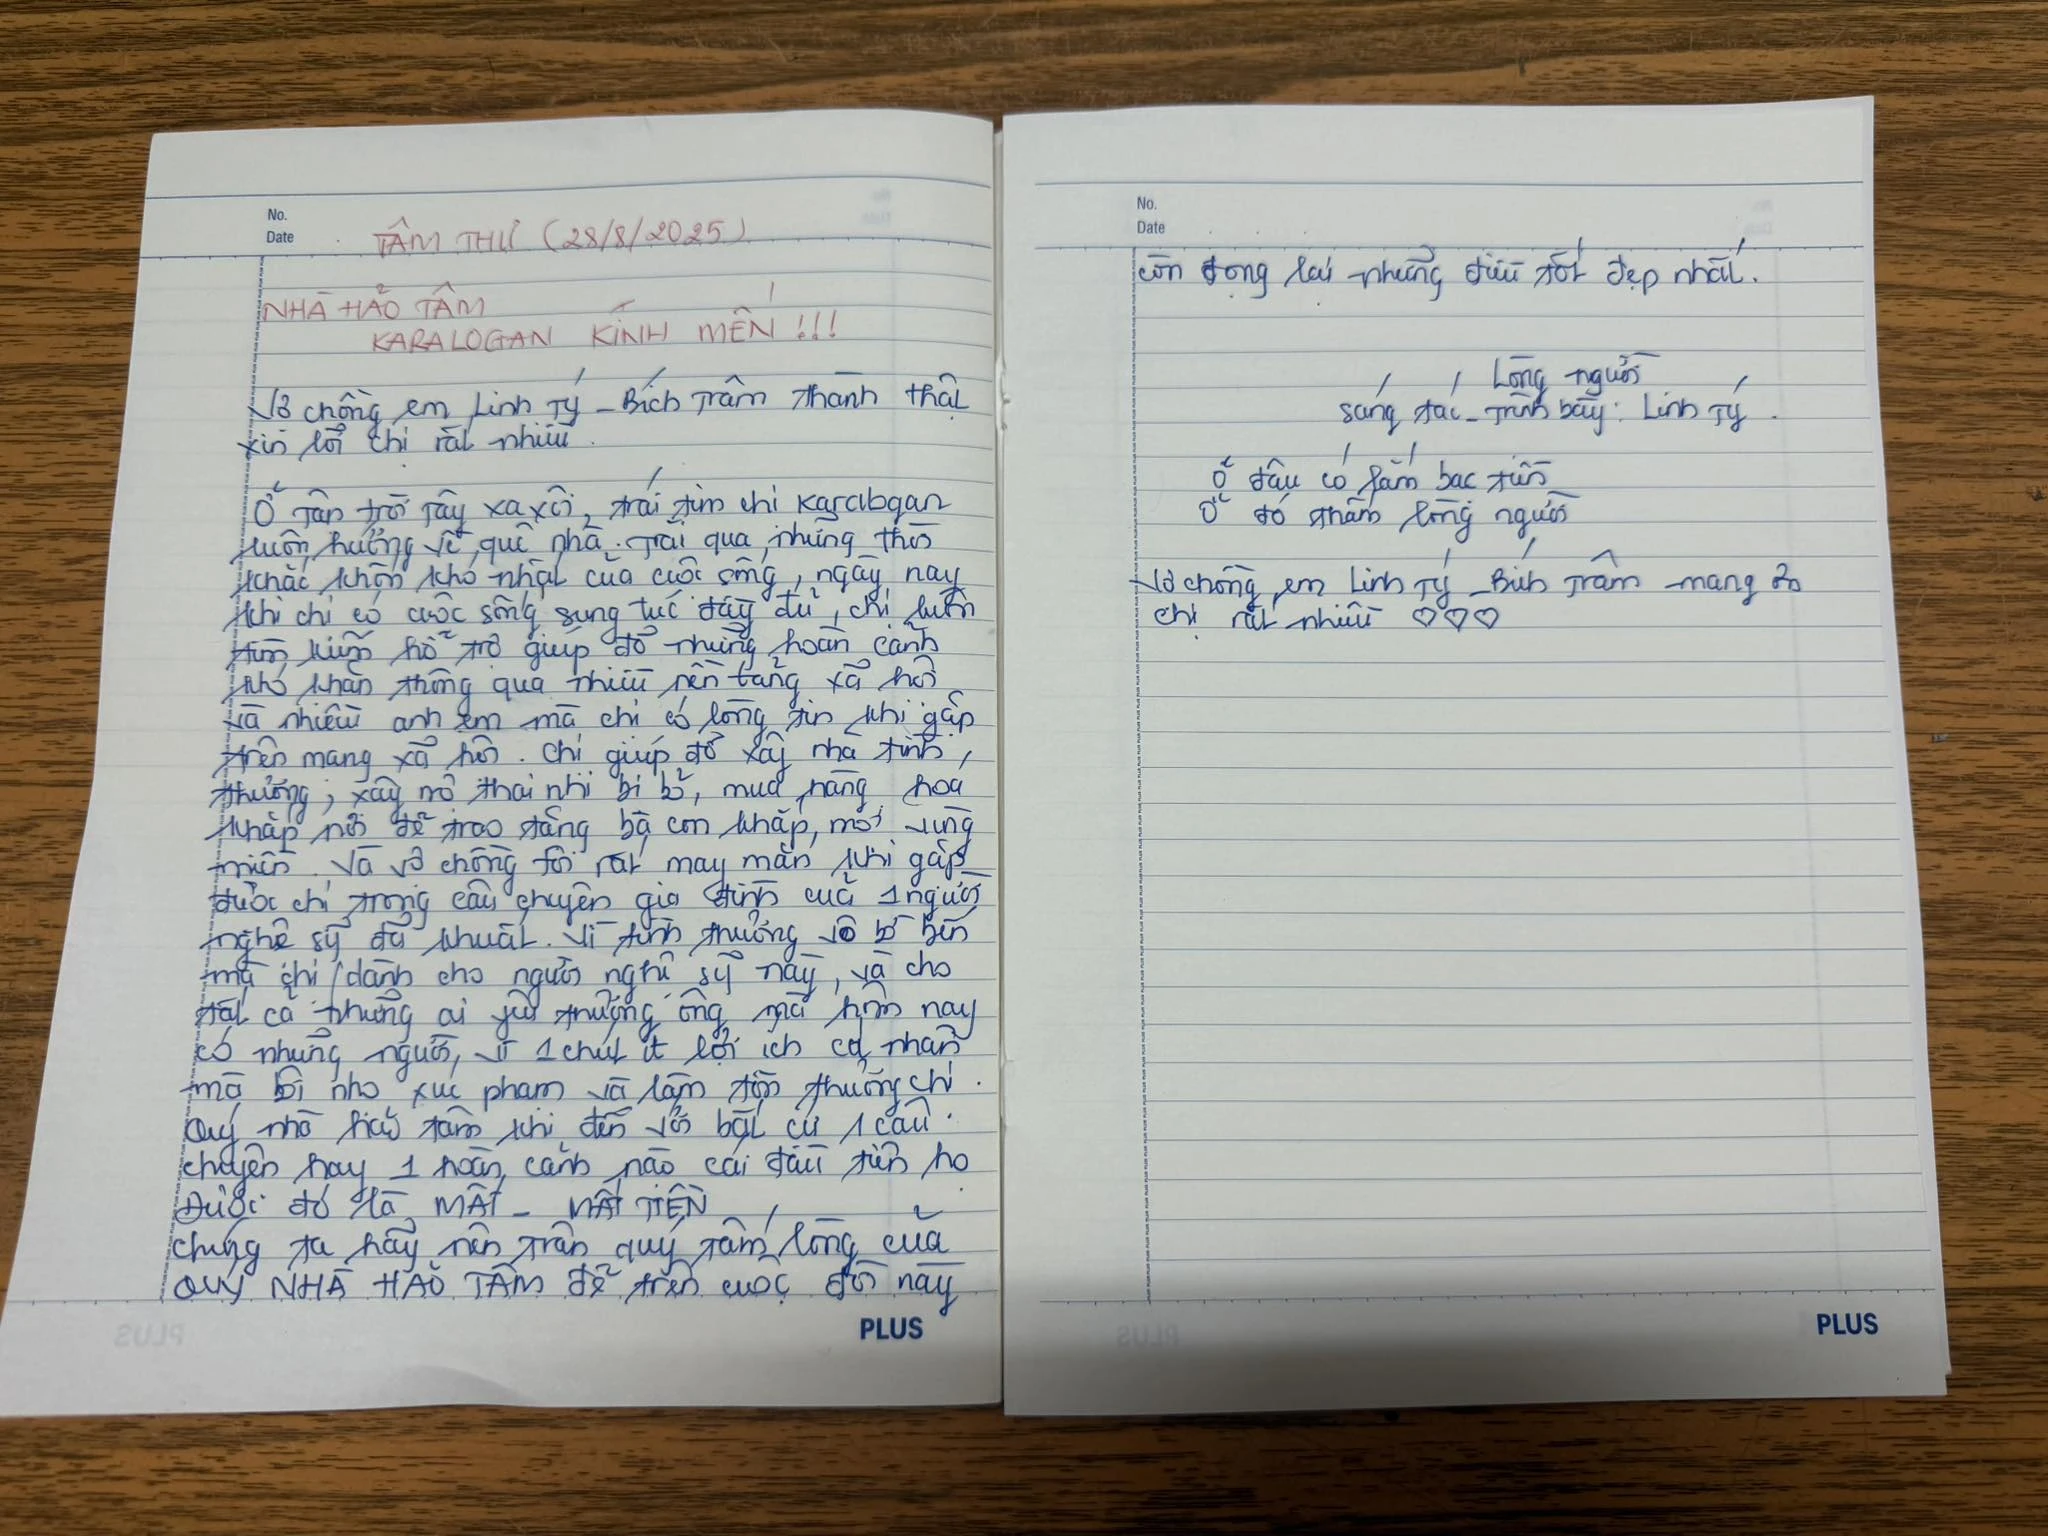 No.
Date
TÂM THƯ (28/8/2025)
NHÀ HẢO TÂM
KARALOGAN KÍNH MẾN !!!
Vợ chồng em Linh Tý - Bích Trâm thành thật
xin lỗi chị rất nhiều.
Ở tận trời Tây xa xôi, trái tim chị Karalogan
luôn hướng về quê nhà. Trải qua những thời
khắc khốn khó nhất của cuộc sống, ngày nay
khi chị có cuộc sống sung túc đầy đủ, chị luôn
tìm kiếm hỗ trợ giúp đỡ những hoàn cảnh
khó khăn thông qua nhiều nền tảng xã hội
và nhiều anh em mà chị có lòng tin khi gặp
trên mạng xã hội. Chị giúp đỡ xây nhà tình
thương, xây mộ thai nhi bị bỏ, mua hàng hoá
khắp nơi để trao tặng bà con khắp mọi vùng
miền. Và vợ chồng tôi rất may mắn khi gặp
được chị trong câu chuyện gia đình của 1 người
nghệ sỹ đã khuất. Vì tình thương vô bờ bến
mà chị dành cho người nghệ sỹ này, và cho
tất cả những ai yêu thương ông mà hôm nay
có những người, vì 1 chút ít lợi ích cá nhân
mà bị nho xúc phạm và làm tổn thương chị.
Quý nhà hảo tâm khi đến với bất cứ 1 câu
chuyện hay 1 hoàn cảnh nào cái đầu tiên họ
được đó là MẤT - MẤT TIỀN
chúng ta hãy nên trân quý tấm lòng của
QUÝ NHÀ HẢO TÂM để trên cuộc đời này
PLUS
No.
Date
còn đọng lại những điều tốt đẹp nhất.
Lòng người
sáng tác - trình bày: Linh Tý.
Ở đâu có lắm bạc tiền
Ở đó thấm lòng người
Vợ chồng em Linh Tý - Bích Trâm mang ơn
chị rất nhiều ♡♡♡
PLUS